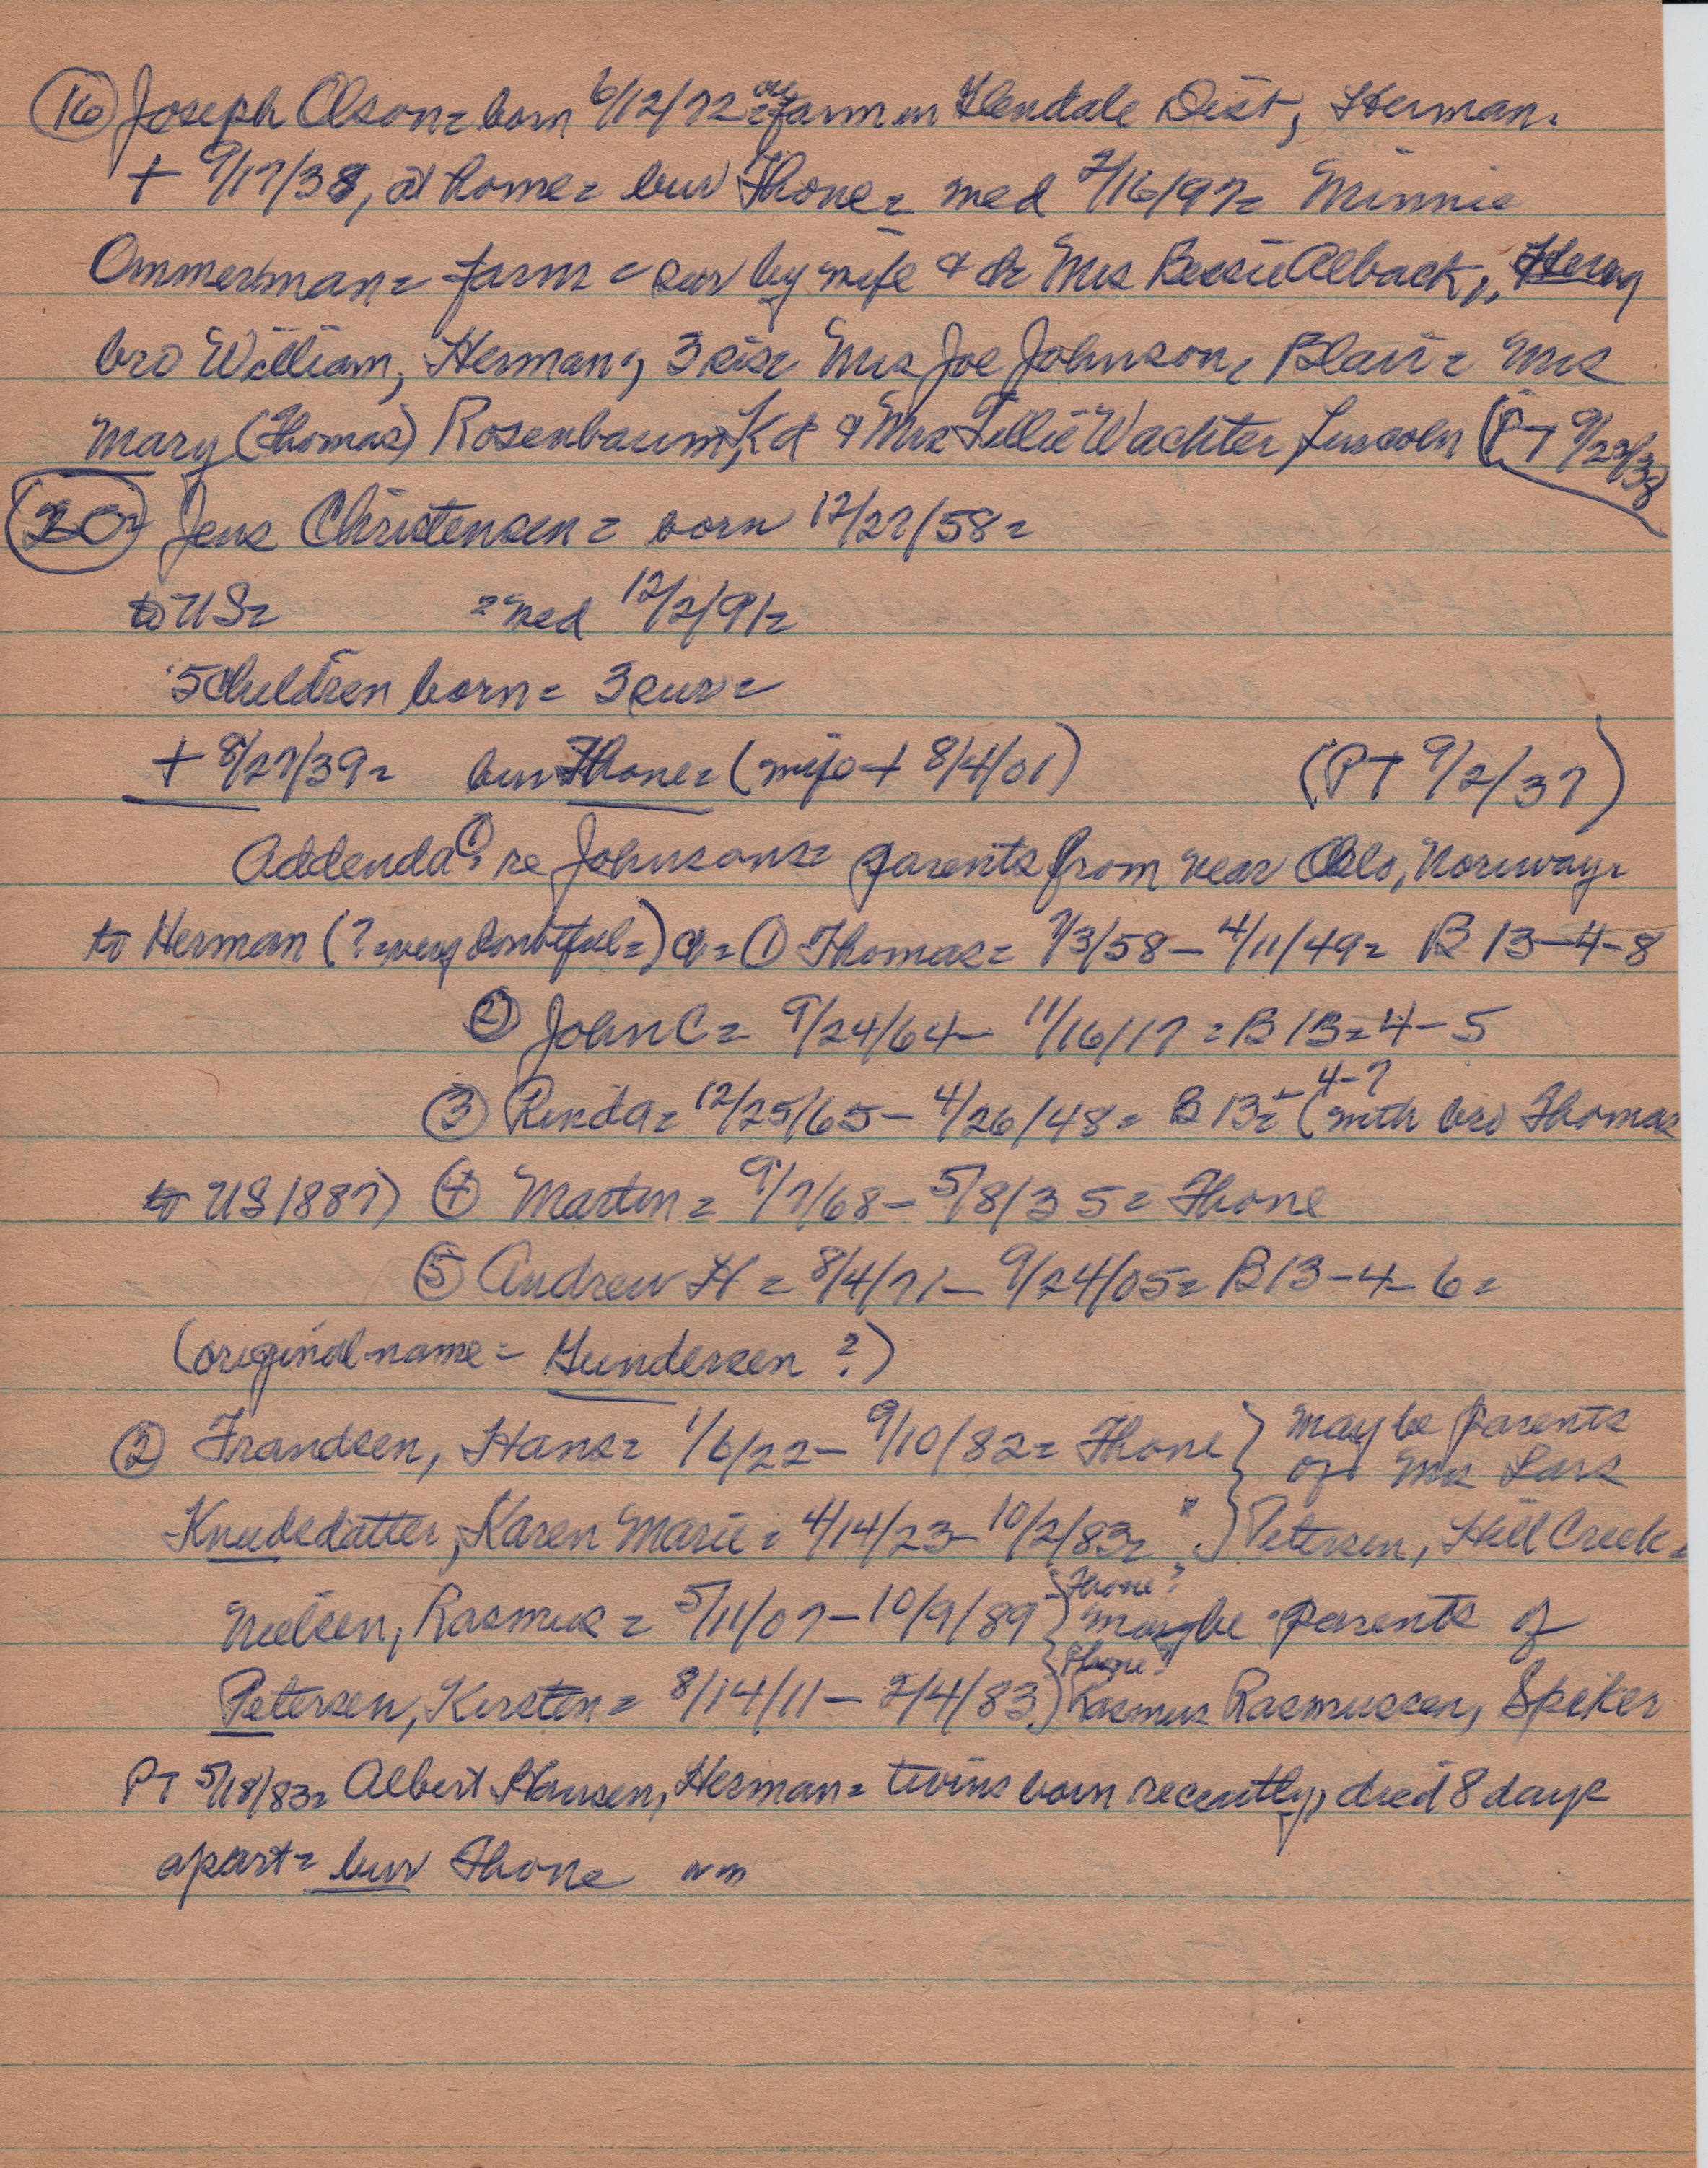 (16) Joseph Olson = born 6/12/72 = on farm in Glendale Dist, Herman.
+ 9/17/38, at home = bur Thone = med 2/16/97 = Minnie
Ommerman = farm = sur by wife & dr Mrs Bessie Alback,, Herman
bro William, Herman, 3 sis = Mrs Joe Johnson, Blair = Mrs
Mary (Thomas) Rosenbaum, Kd & Mrs Tillie Wachter, Lincoln (PT 9/22/38
(20) Jens Christensen = born 12/27/58 =
to US = = med 12/2/91 =
5 children born = 3 sur =
+ 8/27/39 = bur Thone = (wife + 8/4/01) (PT 9/2/37)
Addenda = (1) re Johnsons = parents from near Oslo, Norway =
to Herman (? = very doubtful =) ch = (1) Thomas = 7/3/58 - 4/11/49 = B 13-4-8
(2) John C = 9/24/64 - 11/16/17 = B 13 = 4 - 5
(3) Rinda = 12/25/65 - 4/26/48 = B 13 = - 4-7 (with bro Thomas
to US 1887) (4) Martin = 9/7/68 - 5/8/35 = Thone
(5) Andrew H = 8/4/71 - 9/24/05 = B 13 - 4 - 6 =
(original name = Gundersen ?)
(2) Frandsen, Hans = 1/6/22 - 9/10/82 = Thone } may be parents
of Mrs Lars
Knudsdatter, Karen Marie = 4/14/23 - 10/2/83 = " } Petersen, Hill Creek =
Nielsen, Rasmus = 5/11/07 - 10/9/89 } Thone? maybe parents of
Petersen, Kirsten = 8/14/11 - 2/4/83 } Thone? Rasmus Rasmussen, Spiker
PT 5/18/83 = Albert Hansen, Herman = twins born recently, died 8 days
apart = bur Thone nm